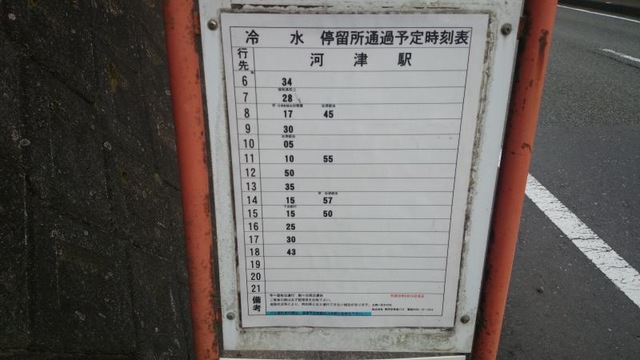 冷 水 停留所通過予定時刻表
行先 河 津 駅
6 34
7 28
8 17 45
9 30
10 05
11 10 55
12 50
13 35
14 15 57
15 15 50
16 25
17 30
18 43
19
20
21
備考